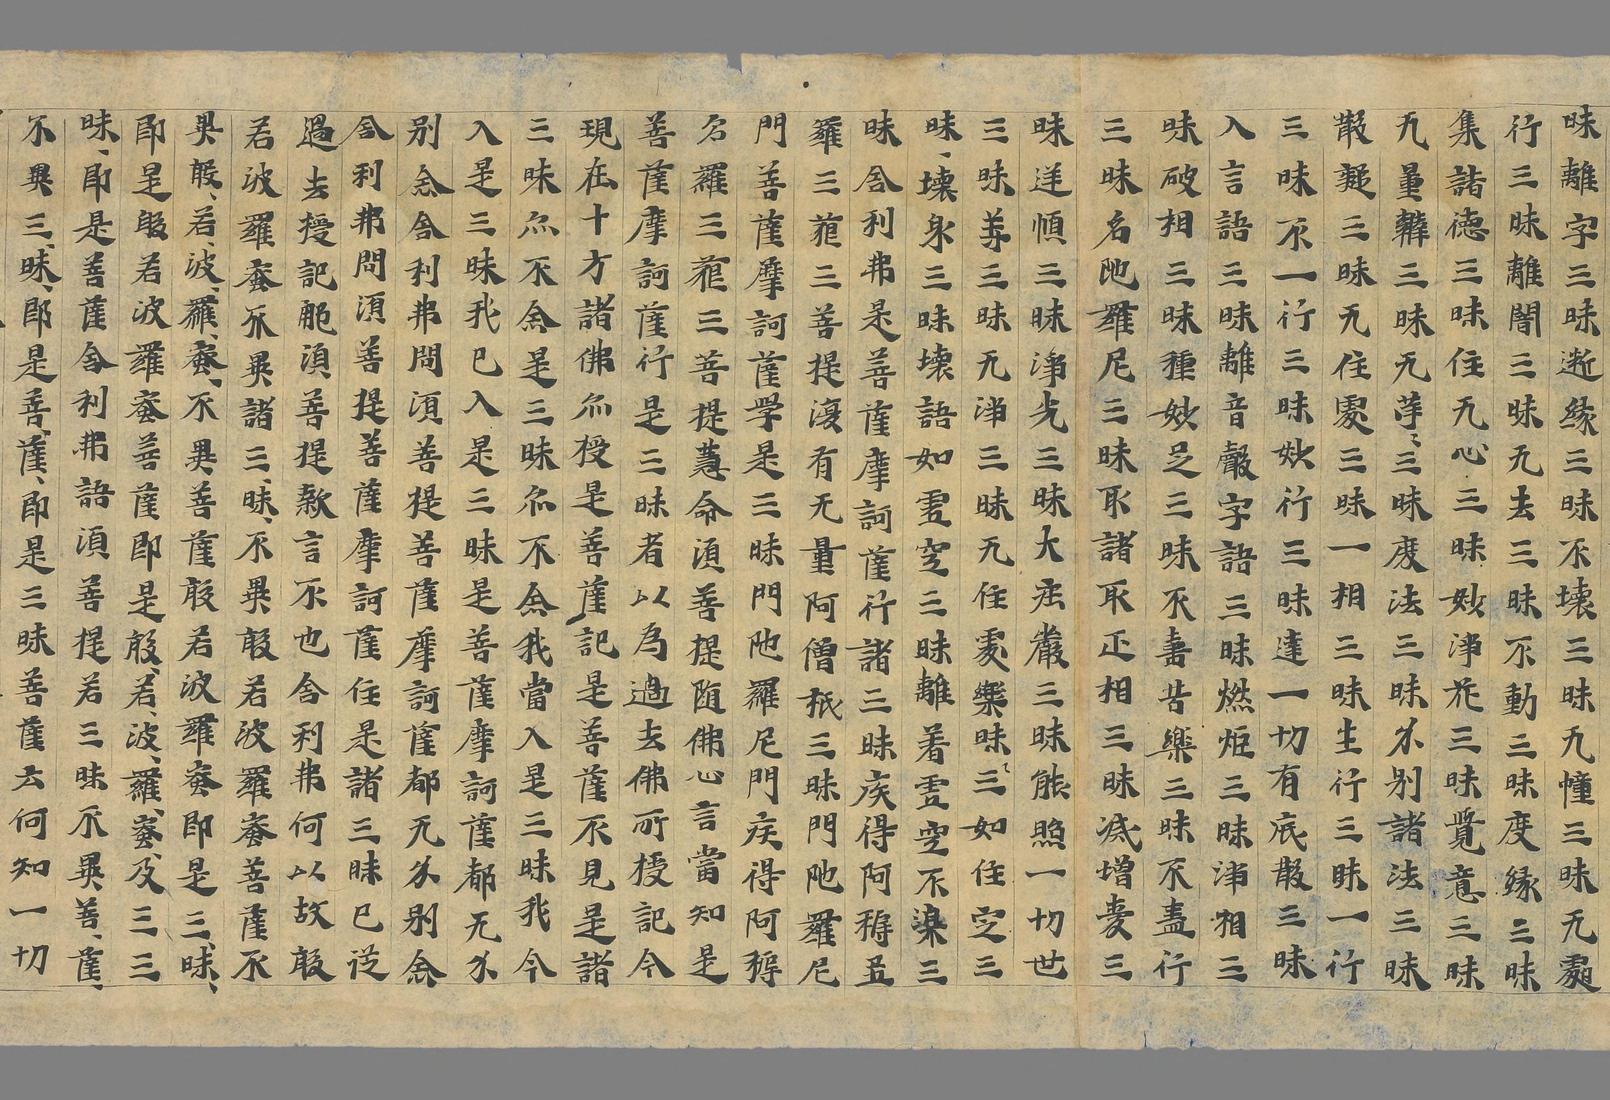 昧離字三昧断緣三昧不壞三昧无幢三昧无處
行三昧離闇三昧无去三昧不動三昧度緣三昧
集諸德三昧住无心三昧妙淨花三昧覺意三昧
无量辯三昧无等〻三昧度法三昧分別諸法三昧
散疑三昧无住處三昧一相三昧生行三昧一行
三昧不一行三昧妙行三昧達一切有底散三昧
入言語三昧離音聲字語三昧燃炬三昧淨相三
昧破相三昧種妙足三昧不憙苦樂三昧不盡行
三昧名陁羅尼三昧取諸取正相三昧滅增憂三
昧逆順三昧淨光三昧大庄嚴三昧能照一切世
三昧等三昧无淨三昧无住處樂昧三如住定三
昧壞身三昧壞語如虛空三昧離著虛空不染三
昧舍利弗是菩薩摩訶薩行諸三昧疾得阿耨
羅三藐三菩提復有无量阿僧祇三昧門陁羅尼
門菩薩摩訶薩學是三昧門陁羅尼門疾得阿耨
多羅三藐三菩提慧命湏菩提随佛心言當知是
菩薩摩訶薩行是三昧者以為過去佛所授記今
現在十方諸佛亦授是菩薩記是菩薩不見是諸
三昧亦不念是三昧亦不念我當入是三昧我今
入是三昧我已入是三昧是菩薩摩訶薩都无分
別念舍利弗問湏菩提菩薩摩訶薩都无分別念
舍利弗問湏菩提菩薩摩訶薩住是諸三昧已從
過去授記耶湏菩提報言不也舍利弗何以故般
若波羅蜜不異諸三昧不異般若波羅蜜菩薩不
異般若波羅蜜不異菩薩般若波羅蜜即是三昧
即是般若波羅蜜菩薩即是般若波羅蜜及三三
昧即是菩薩舍利弗語湏菩提若三昧不異菩薩
不異三昧即是菩薩即是三昧菩薩云何知一切